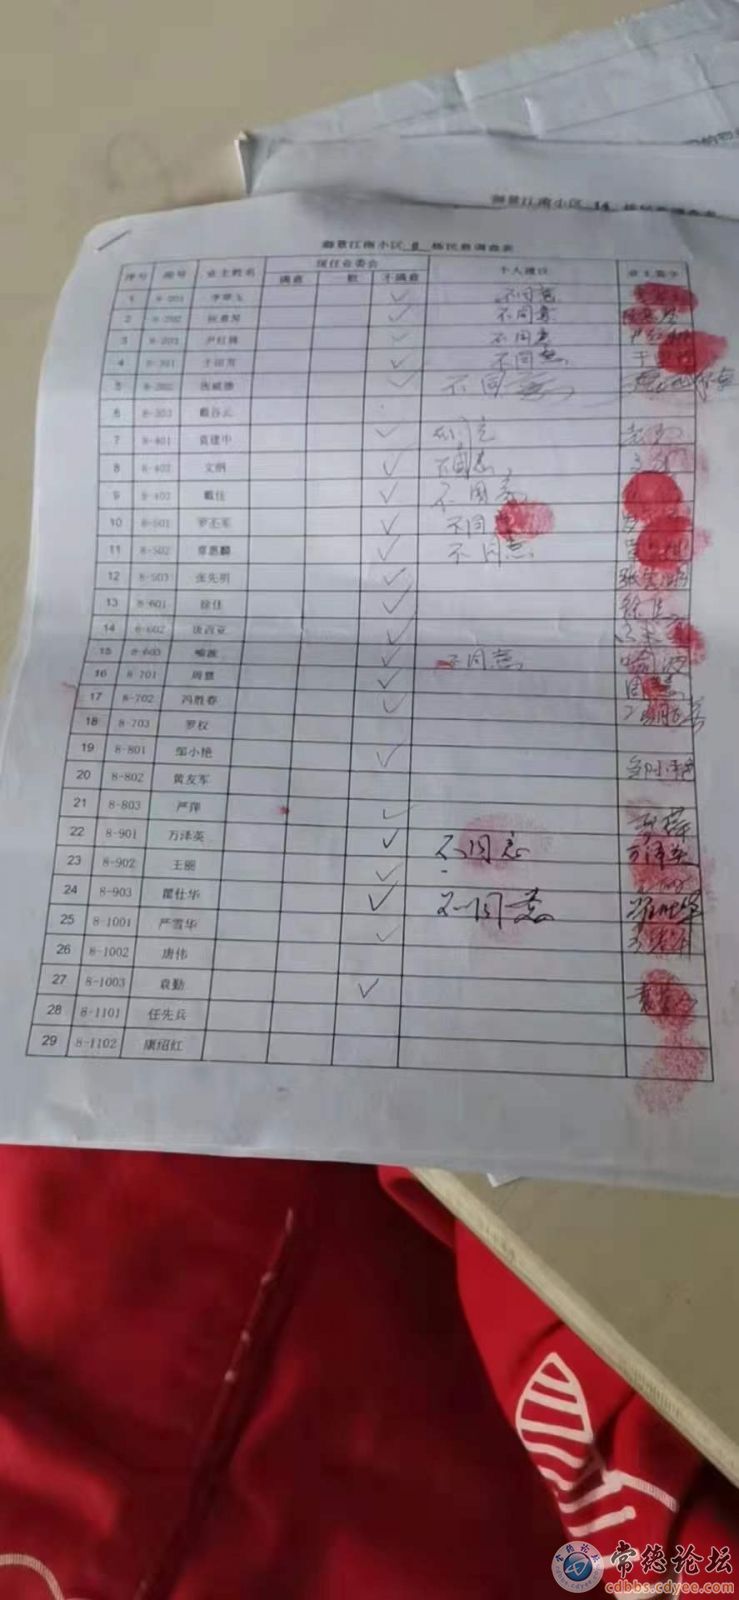 江南小区 14
江南小区 8 栋民意调查表
序号 房号 业主姓名 现任业委会 个人建议 业主签字
满意 一般 不满意
1 8-201 ✓ 不同意
2 8-202 ✓ 不同意
3 8-203 尹红梅 ✓ 不同意
4 8-301 ✓ 不同意
5 8-302 ✓ 不同意
6 8-303 戴谷云
7 8-401 袁建中 ✓
8 8-402 文明 ✓ 不同意
9 8-403 戴佳 ✓ 不同意
10 8-501 罗丕军 ✓ 不同
11 8-502 覃惠麟 ✓ 不同意
12 8-503 张先明 ✓ 张先明
13 8-601 徐佳 ✓ 徐佳
14 8-602 ✓
15 8-603 喻波 ✓ 不同意 喻波
16 8-701 周慧 ✓ 周慧
17 8-702 冯胜春 ✓
18 8-703 罗权
19 8-801 邹小艳 ✓ 邹小艳
20 8-802 黄友军
21 8-803 严萍 ✓ 严萍
22 8-901 万泽英 ✓ 不同意 万泽英
23 8-902 王丽 ✓
24 8-903 瞿仕华 ✓ 不同意 瞿仕华
25 8-1001 严雪华 ✓
26 8-1002 唐伟
27 8-1003 袁勤 ✓
28 8-1101 任先兵
29 8-1102 康绍红
常德论坛
cdbbs.cdyee.com